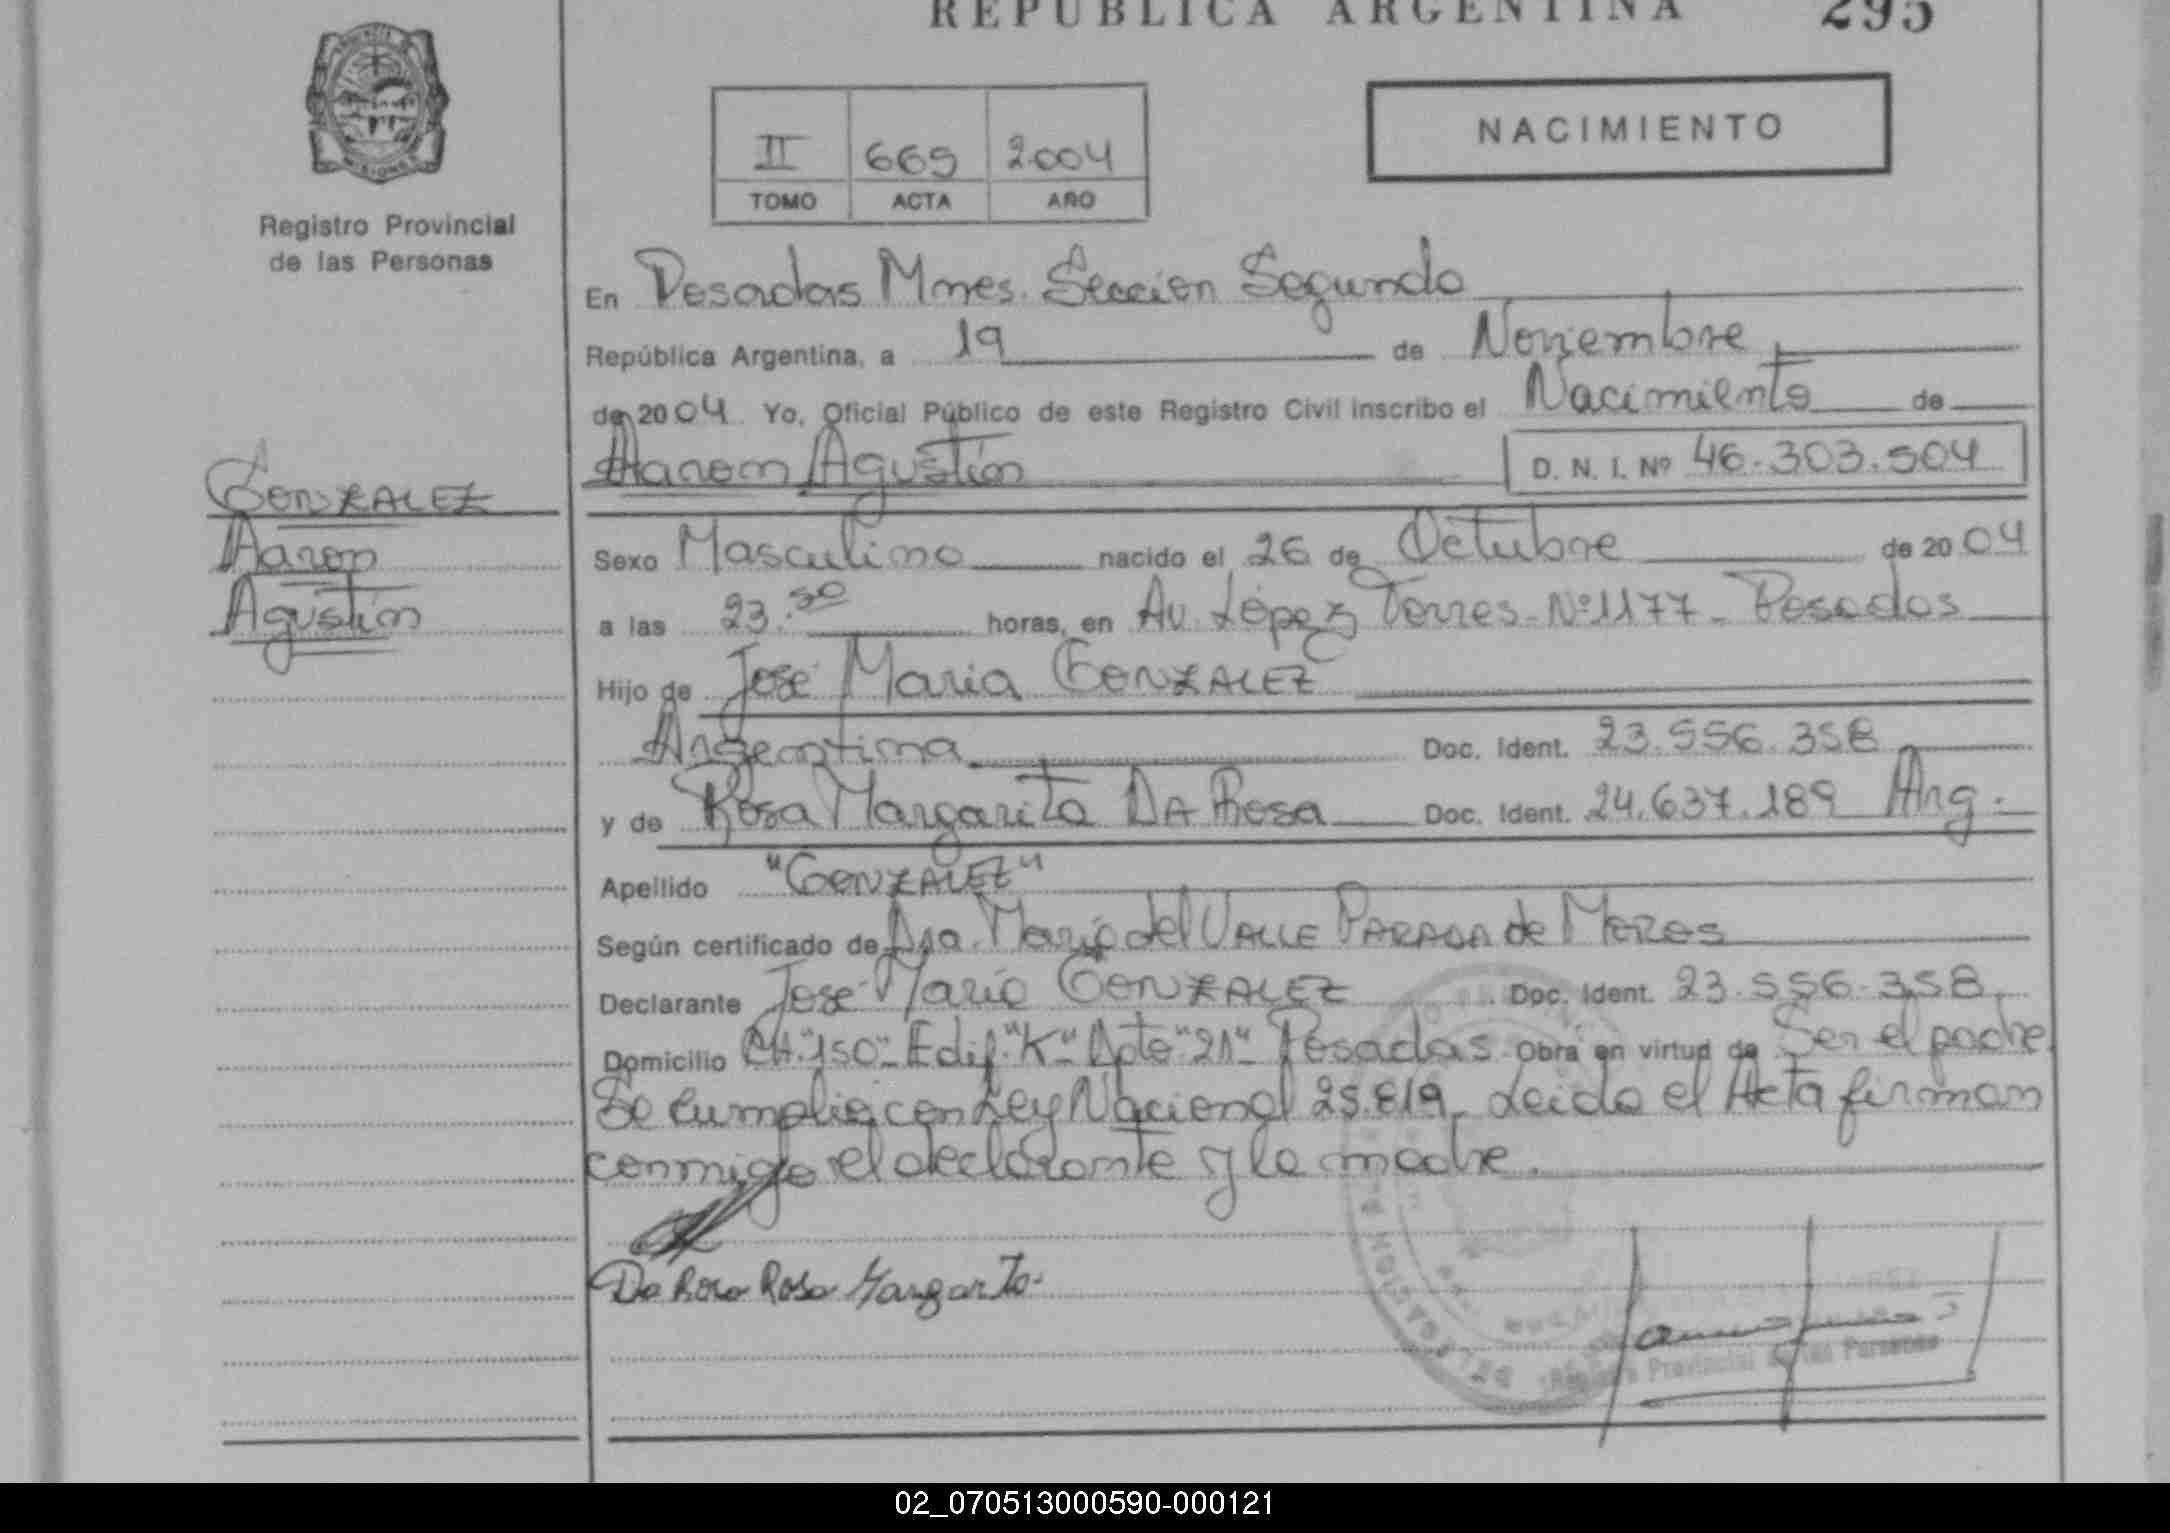 REPUBLICA ARGENTINA 295
NACIMIENTO
II 669 2004
TOMO ACTA AÑO
Registro Provincial
de las Personas
En Posadas Mnes. Sección Segunda
República Argentina, a 19 de Noviembre
de 2004 Yo, Oficial Público de este Registro Civil inscribo el Nacimiento de
Aaron Agustín D. N. I. Nº 46.303.504
GONZALEZ
Aaron
Agustín
Sexo Masculino nacido el 26 de Octubre de 2004
a las 23.30 horas, en Av. López Torres-Nº1177- Posadas
Hijo de José María GONZALEZ
Argentina Doc. Ident. 23.556.358
y de Rosa Margarita DA Rosa Doc. Ident. 24.637.189 Arg.
Apellido "GONZALEZ"
Según certificado de Dra. María del VALLE PARADA de
Declarante José María GONZALEZ Doc. Ident. 23.556.358
Domicilio CH."150"- Edif."K" Dpto "21" Posadas Obra en virtud de Ser el padre
Se cumplio con Ley Nacional 25.819. Leida el Acta firman
conmigo el declarante y la madre.
Da Rosa Rosa Margarita
Provincial de las Personas
02_070513000590-000121